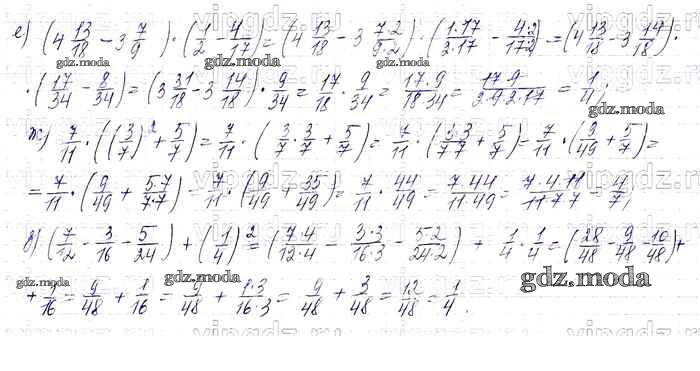 е) (4 13/18 - 3 7/9) · (1/2 - 4/17) = (4 13/18 - 3 7·2/9·2) · (1·17/2·17 - 4·2/17·2) = (4 13/18 - 3 14/18) ·
· (17/34 - 8/34) = (3 31/18 - 3 14/18) · 9/34 = 17/18 · 9/34 = 17·9/18·34 = 17·9/2·9·2·17 = 1/4;
ж) 7/11 · ((3/7)² + 5/7) = 7/11 · (3/7·3/7 + 5/7) = 7/11 · (3·3/7·7 + 5/7) = 7/11 · (9/49 + 5/7) =
= 7/11 · (9/49 + 5·7/7·7) = 7/11 · (9/49 + 35/49) = 7/11 · 44/49 = 7·44/11·49 = 7·4·11/11·7·7 = 4/7;
з) (7/12 - 3/16 - 5/24) + (1/4)² = (7·4/12·4 - 3·3/16·3 - 5·2/24·2) + 1/4 · 1/4 = (28/48 - 9/48 - 10/48) +
+ 1/16 = 9/48 + 1/16 = 9/48 + 1·3/16·3 = 9/48 + 3/48 = 12/48 = 1/4.
gdz.moda
gdz.moda
gdz.moda
gdz.moda
gdz.moda
gdz.moda
gdz.moda
vipgdz.ru